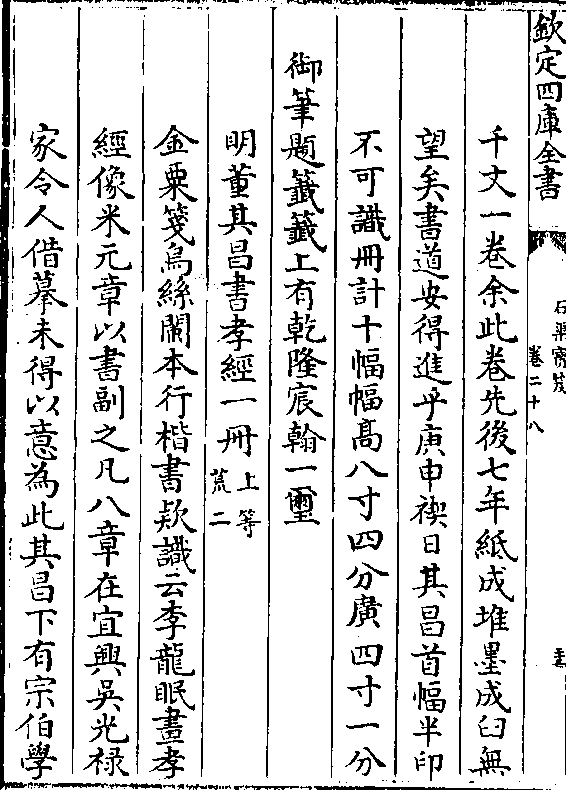 欽定四庫全書
石渠寶笈
卷二十八
千文一卷余此卷先後七年紙成堆墨成臼無
望矣書道安得進乎庚申禊日其昌首幅半印
不可識冊計十幅幅高八寸四分廣四寸一分
御筆題籤籤上有乾隆宸翰一璽
明董其昌書孝經一冊上等荒二
金粟箋烏絲闌本行楷書欵識云李龍眠畫孝
經像米元章以書副之凡八章在宜興吳光祿
家令人借摹未得以意為此其昌下有宗伯學